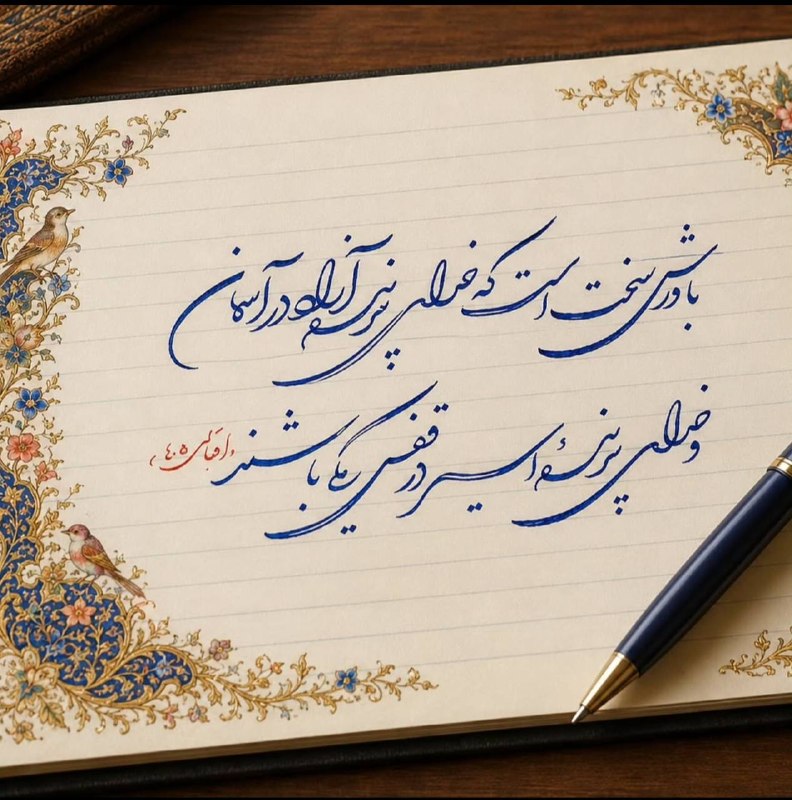 باورش سخت است که خدای پرنده آزاد در آسمان
و خدای پرندهٔ اسیر در قفس یکی باشند